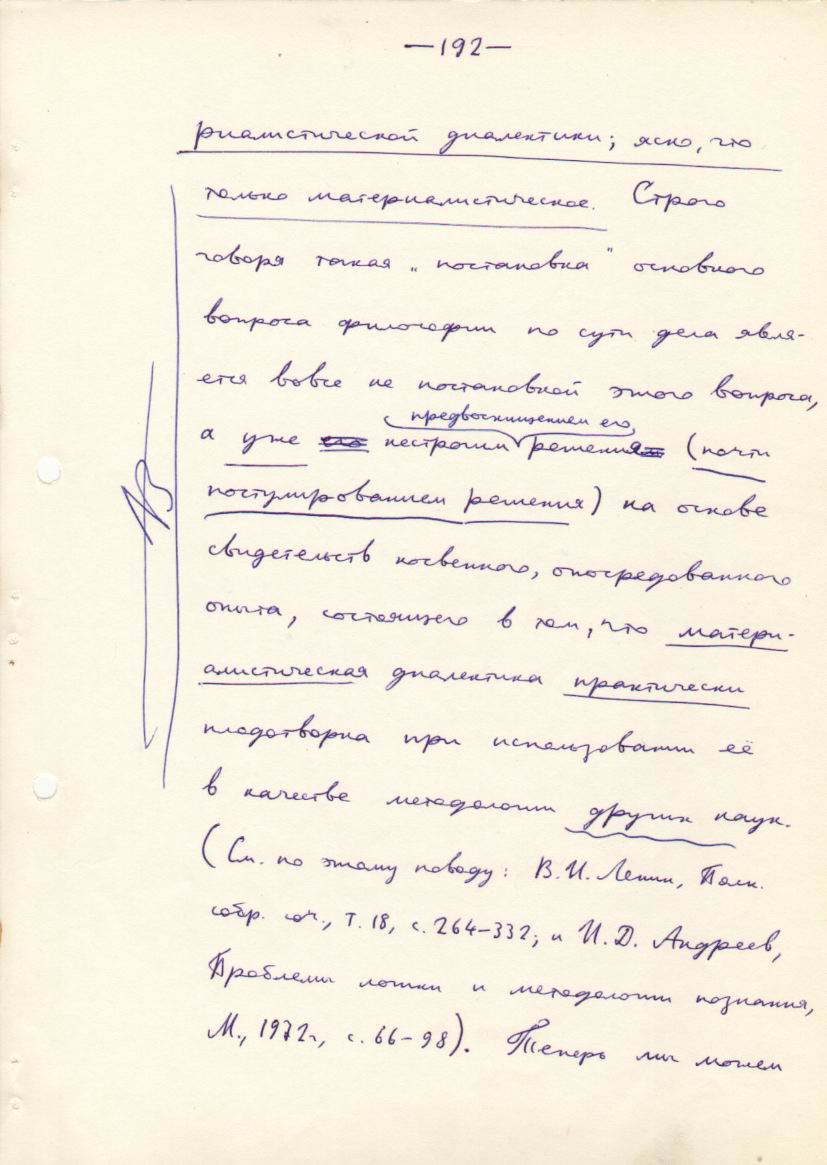 —192—
риалистической диалектики; ясно, что
только материалистическое. Строго
говоря такая „постановка" основного
вопроса философии по сути дела явля-
ется вовсе не постановкой этого вопроса,
предвосхищением его
а уже его нестрогим решения (почти
постулированием решения) на основе
свидетельств косвенного, опосредованного
опыта, состоящего в том, что матери-
алистическая диалектика практически
плодотворна при использовании её
в качестве методологии других наук.
(См. по этому поводу: В.И. Ленин, Полн.
собр. соч., т. 18, с. 264–332; и И.Д. Андреев,
Проблемы логики и методологии познания,
М., 1972г., с. 66–98). Теперь мы можем
NB